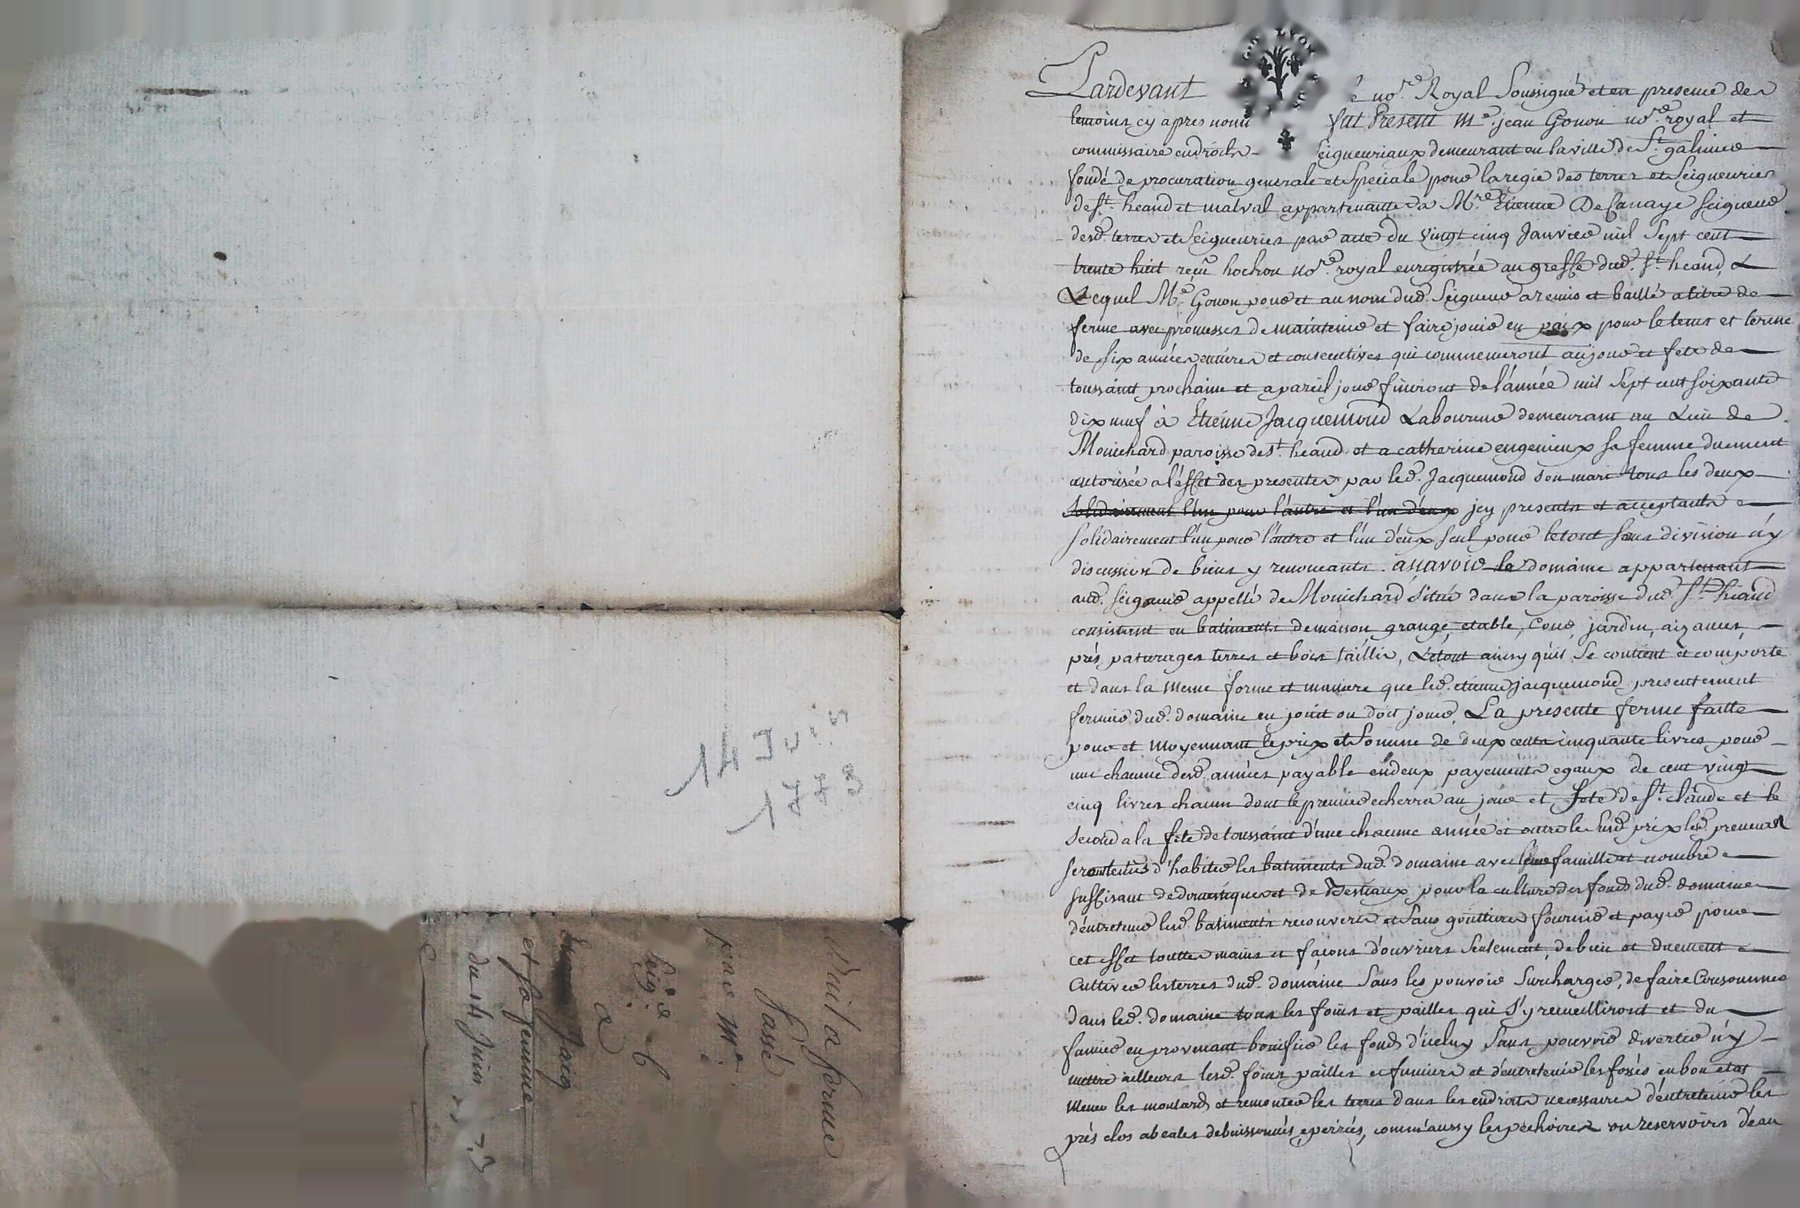 14 Juin
1773
Bail a ferme
passé
pour Mre
Seigr
a
Jacq
et sa femme
du 14 Juin 73
LYON
Pardevant le nore. Royal Soussigné et en presence des
temoins cy apres nom fut Present Me. jean Gonon nore. royal et
commissaire en droits seigneuriaux demeurant en la ville de St. galmier
fondé de procuration generale et speciale pour la regie des terres et Seigneuries
de St. heand et malval appartenantes a Mre. Etienne De Canaye Seigneur
desd. terres et Seigneuries par acte du vingt cinq Janvier mil Sept cent
trente huit reçu hochon nore. royal enregistrée au greffe dud. St. heand, &
Lequel Me. Gonon pour et au nom dud. Seigneur a remis et baillé a titre de
ferme avec promesses de maintenir et faire jouir en paix pour le tems et terme
de six années entieres et consecutives qui commenceront au jour et fete de
toussaint prochaine et a pareil jour finiront de l'année mil Sept cent soixante
dix neuf à Etienne Jacquemond Laboureur demeurant au Lieu de
Mouichard paroisse de St. heand et a catherine engenieux sa femme duement
autorisée a l'effet des presentes par led. Jacquemond son mari tous les deux
solidairement l'un pour l'autre et l'un d'eux jcy presents et acceptants
solidairement l'un pour l'autre et l'un d'eux seul pour le tout sans division n'y
discussion de biens y renonceants. assavoir le domaine appartenant
aud. seigneur appellé de Mouichard situé dans la paroisse dud. St. heand
consistant en batiments de maison grange, etable, Cour, jardin, aizances,
prés paturages terres et bois taillis, Le tout ainsy qu'il se contient et comporte
et dans la meme forme et maniere que led. etienne jacquemond presentement
fermier dud. domaine en jouit ou doit jouir, La presente ferme faitte
pour et moyennant le prix et somme de deux cents cinquante livres pour
une chacune desd. années payable en deux payements egaux de cent vingt
cinq livres chacun dont le premier echerra au jour et fete de St. claude et le
second a la fete de toussaint d'une chacune année et outre le susd. prix lesd. preneurs
seront tenus d'habiter les batiments dud. domaine avec leur famille et nombre
suffisant de domestiques et de Bestiaux pour la culture des fonds dud. domaine
d'entretenir lesd. batiments recouverts et sans gouttieres fournir et payer pour
cet effet touttes mains et façons d'ouvriers seulement, de bien et duement
Cultiver les terres dud. domaine sans les pouvoir surcharger, de faire Consommer
dans led. domaine tous les foins et pailles qui s'y recueilliront et du
fumier en provenant bonifier les fonds d'iceluy sans pouvoir divertir n'y
mettre ailleurs lesd. foins pailles et fumiers et d'entretenir les fossés en bon etat
mener les moutards et remonter les terres dans les endroits necessaires d'entretenir les
prés clos abeales debuissonnés, eperrés, comm'aussy les pechoires ou reservoirs d'eau